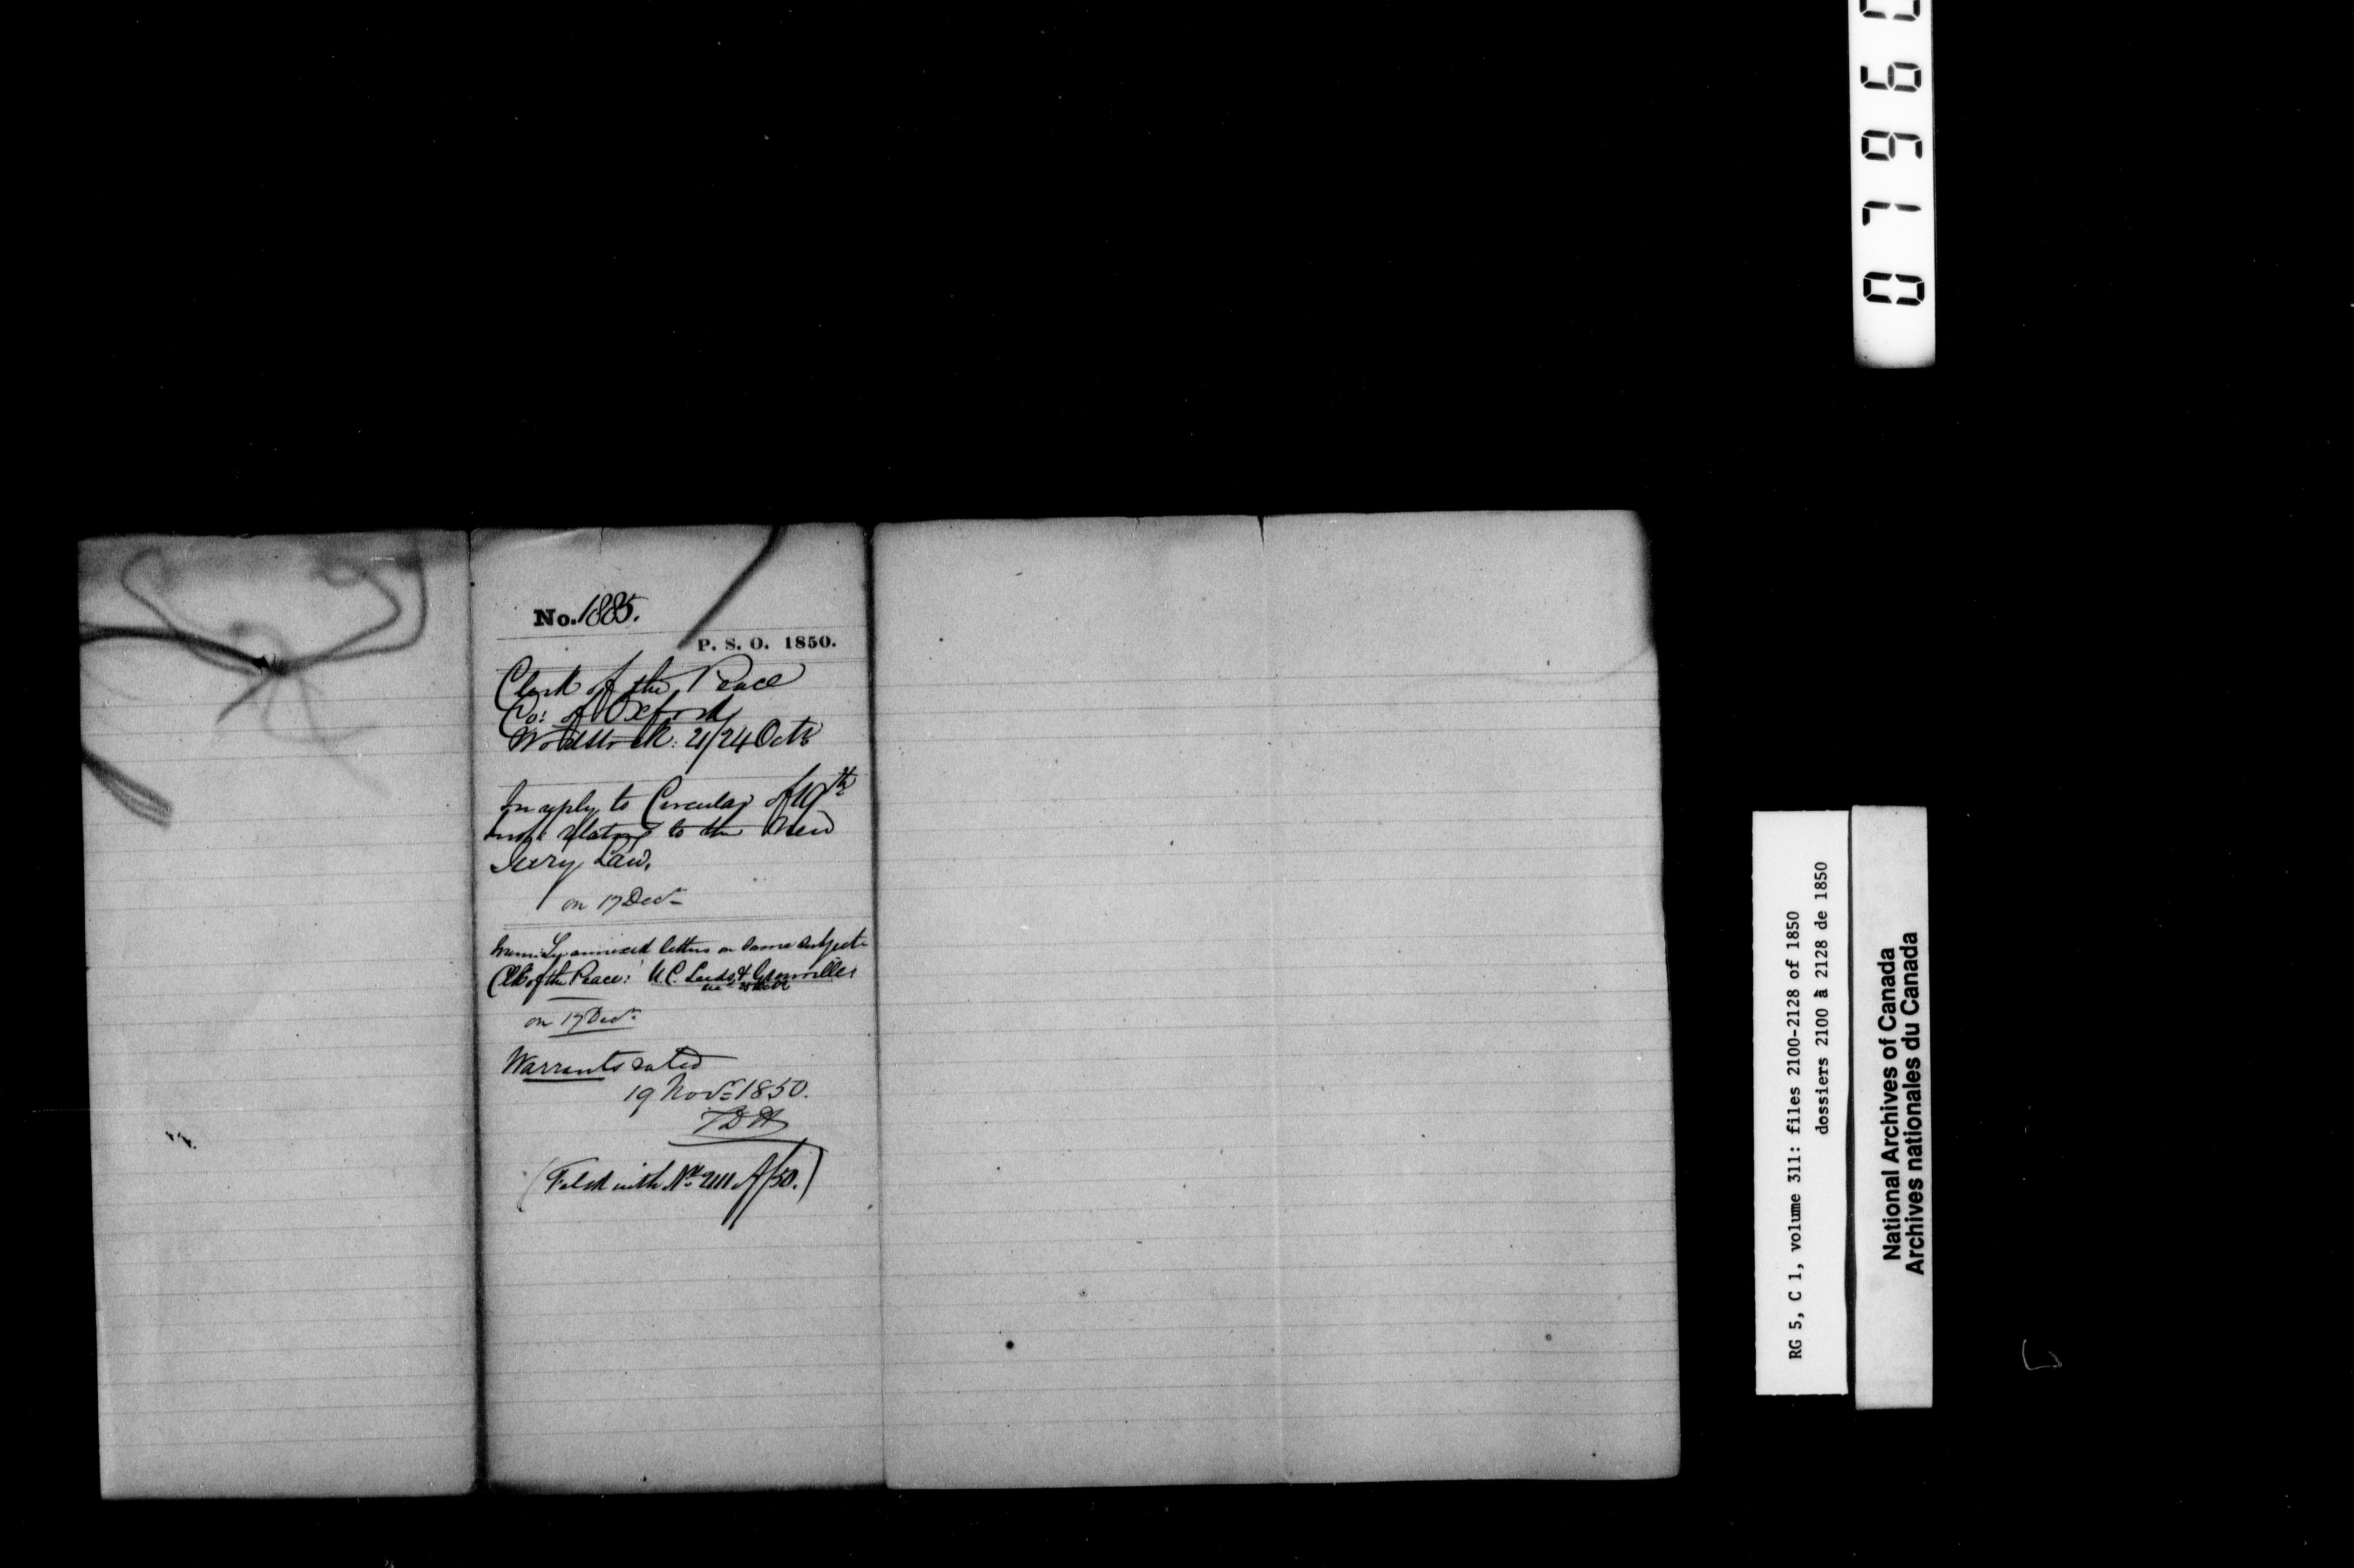 No. 1885.
P. S. O. 1850.
Clerk of the Peace
Co: of Oxford
Woodstock: 21/24 Octr
In reply to Circular of 19th
inst relating to the New
Jury Law.
on 17 Decr
annexed letters on same subject
Clk of the Peace: U.C. Leeds & Grenville
on 17 Decr
Warrants dated
19 Novr 1850.
(Filed with No 2111 of /50.)
07960
RG 5, C 1, volume 311: files 2100-2128 of 1850
dossiers 2100 à 2128 de 1850
National Archives of Canada
Archives nationales du Canada